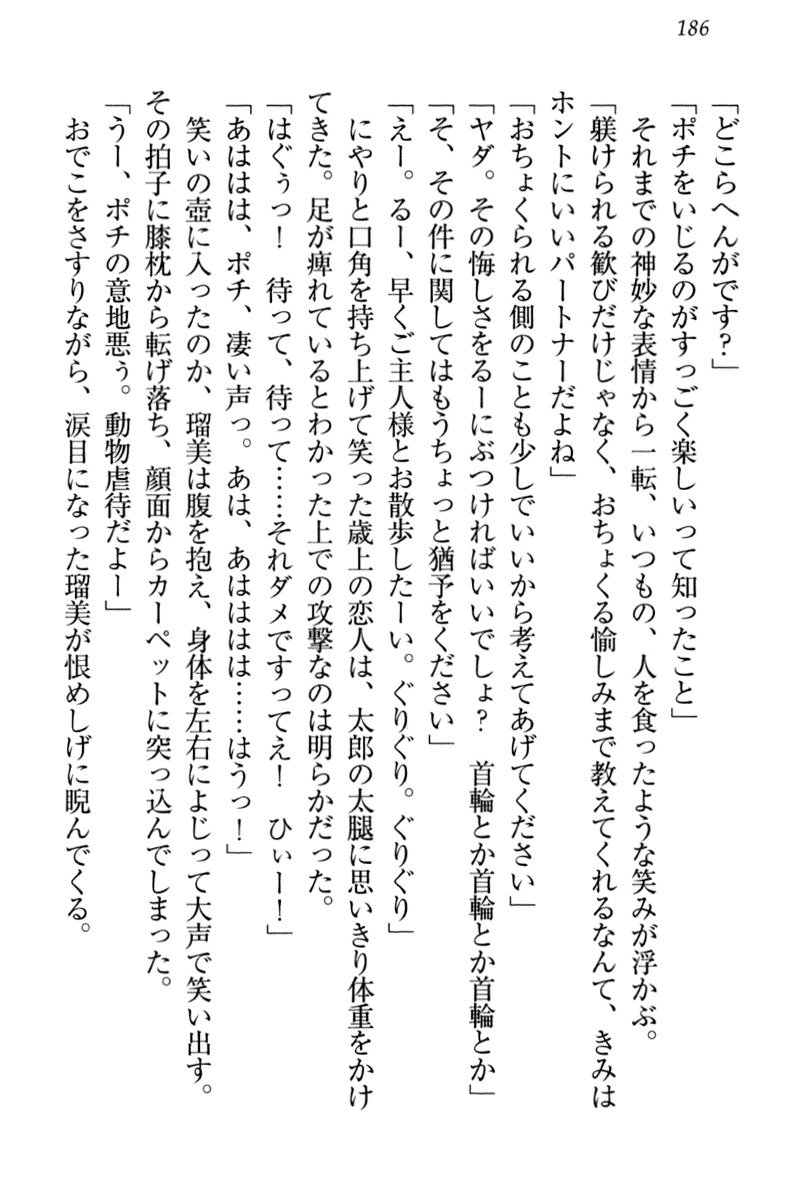 186
「どこらへんがです？」
「ポチをいじるのがすっごく楽しいって知ったこと」
それまでの神妙な表情から一転、いつもの、人を食ったような笑みが浮かぶ。
「躾けられる歓びだけじゃなく、おちょくる愉しみまで教えてくれるなんて、きみは
ホントにいいパートナーだよね」
「おちょくられる側のことも少しでいいから考えてあげてください」
「ヤダ。その悔しさをるーにぶつければいいでしょ？　首輪とか首輪とか首輪とか」
「そ、その件に関してはもうちょっと猶予をください」
「えー。るー、早くご主人様とお散歩したーい。ぐりぐり。ぐりぐり」
にやりと口角を持ち上げて笑った歳上の恋人は、太郎の太腿に思いきり体重をかけ
てきた。足が痺れているとわかった上での攻撃なのは明らかだった。
「はぐぅっ！　待って、待って……それダメですってえ！　ひぃー！」
「あははは、ポチ、凄い声っ。あは、あはははは……はうっ！」
笑いの壺に入ったのか、瑠美は腹を抱え、身体を左右によじって大声で笑い出す。
その拍子に膝枕から転げ落ち、顔面からカーペットに突っ込んでしまった。
「うー、ポチの意地悪ぅ。動物虐待だよー」
おでこをさすりながら、涙目になった瑠美が恨めしげに睨んでくる。